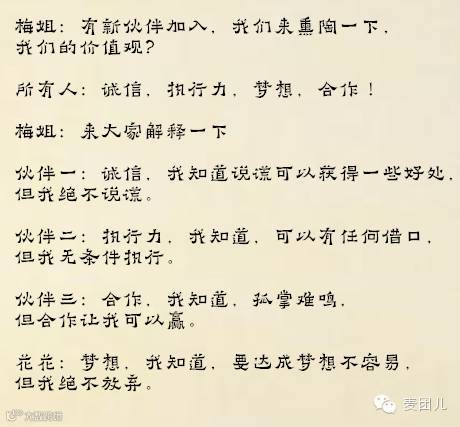 梅姐：有新伙伴加入，我们来熏陶一下，
我们的价值观？
所有人：诚信，执行力，梦想，合作！
梅姐：来大家解释一下
伙伴一：诚信，我知道说谎可以获得一些好处，
但我绝不说谎。
伙伴二：执行力，我知道，可以有任何借口，
但我无条件执行。
伙伴三：合作，我知道，孤掌难鸣，
但合作让我可以赢。
花花：梦想，我知道，要达成梦想不容易，
但我绝不放弃。
麦团儿